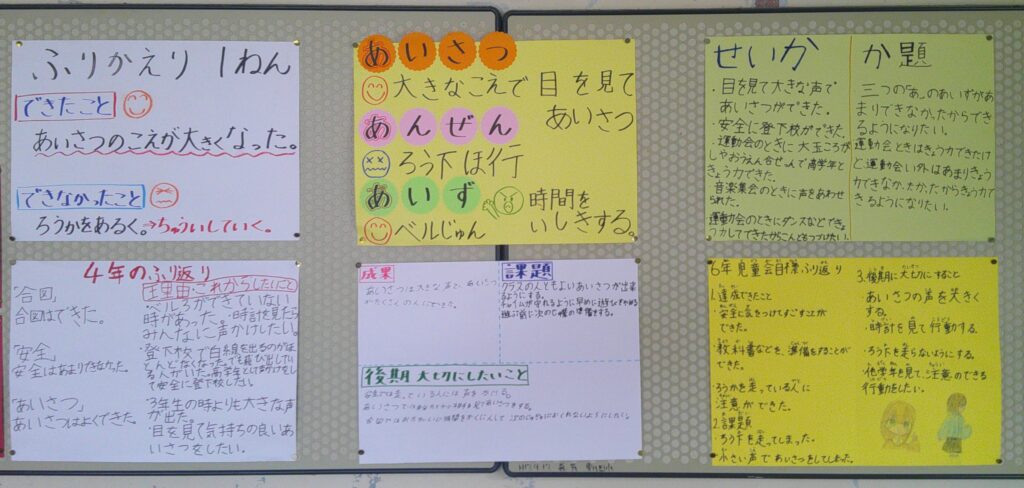 ふりかえり 1ねん
できたこと
あいさつのこえが大きくなった。
できなかったこと
ろうかをあるく。→ちゅういしていく。
あいさつ
大きなこえで目を見て
あいさつ
あんぜん
ろう下ほ行
あいず
時間を
いしきする。
ベルじゅん
せいか
・目を見て大きな声で
あいさつができた。
・安全に登下校ができた。
・運動会のときに大玉ころが
しやおうえん合せんで高学年と
きょう力できた。
音楽集会のときに声をあわせ
られた。
運動会のときにダンスなどできょう
力してできたから
か題
三つの「あ」のあいずがあ
まりできなかったからでき
るようになりたい。
運動会ときはきょう力できたけ
ど運動会い外はあまりきょう
力できなかったからきょう力で
きるようになりたい。
4年のふり返り
「合図」
合図はできた。
「安全」
安全はあまりできなかった。
「あいさつ」
あいさつはよくできた。
理由・これからしたいこと
・ベルじゅんができていない
時があった。・時計を見たら
みんなに声かけしたい。
・登下校で白線を出るのがほ
とんどなくなった
安全に登下校したい。
・3年生の時よりも大きな声
が出た。
・目を見て気持ちの良いあ
いさつをしたい。
成果
あいさつは大きな声で、あいさつ
課題
クラスの人ともよいあいさつが出来
るようにする。
チャイムが守れるように早めに遊びをやめる
遊ぶ前に次のじゅ業の準備をする。
後期 大切にしたいこと
6年 児童会目標ふり返り
1.達成できたこと
・安全に気をつけてすごすことが
できた。
・教科書などを、準備をすることが
できた。
・ろうかを走っている人に
注意ができた。
2.課題
・ろう下を走ってしまった。
・小さい声であいさつをしてしまった。
3.後期に大切にすること
・あいさつの声を大きく
する。
・時計を見て行動する。
・ろう下を走らないようにする。
・他学年を見て、注意のできる
行動をしたい。